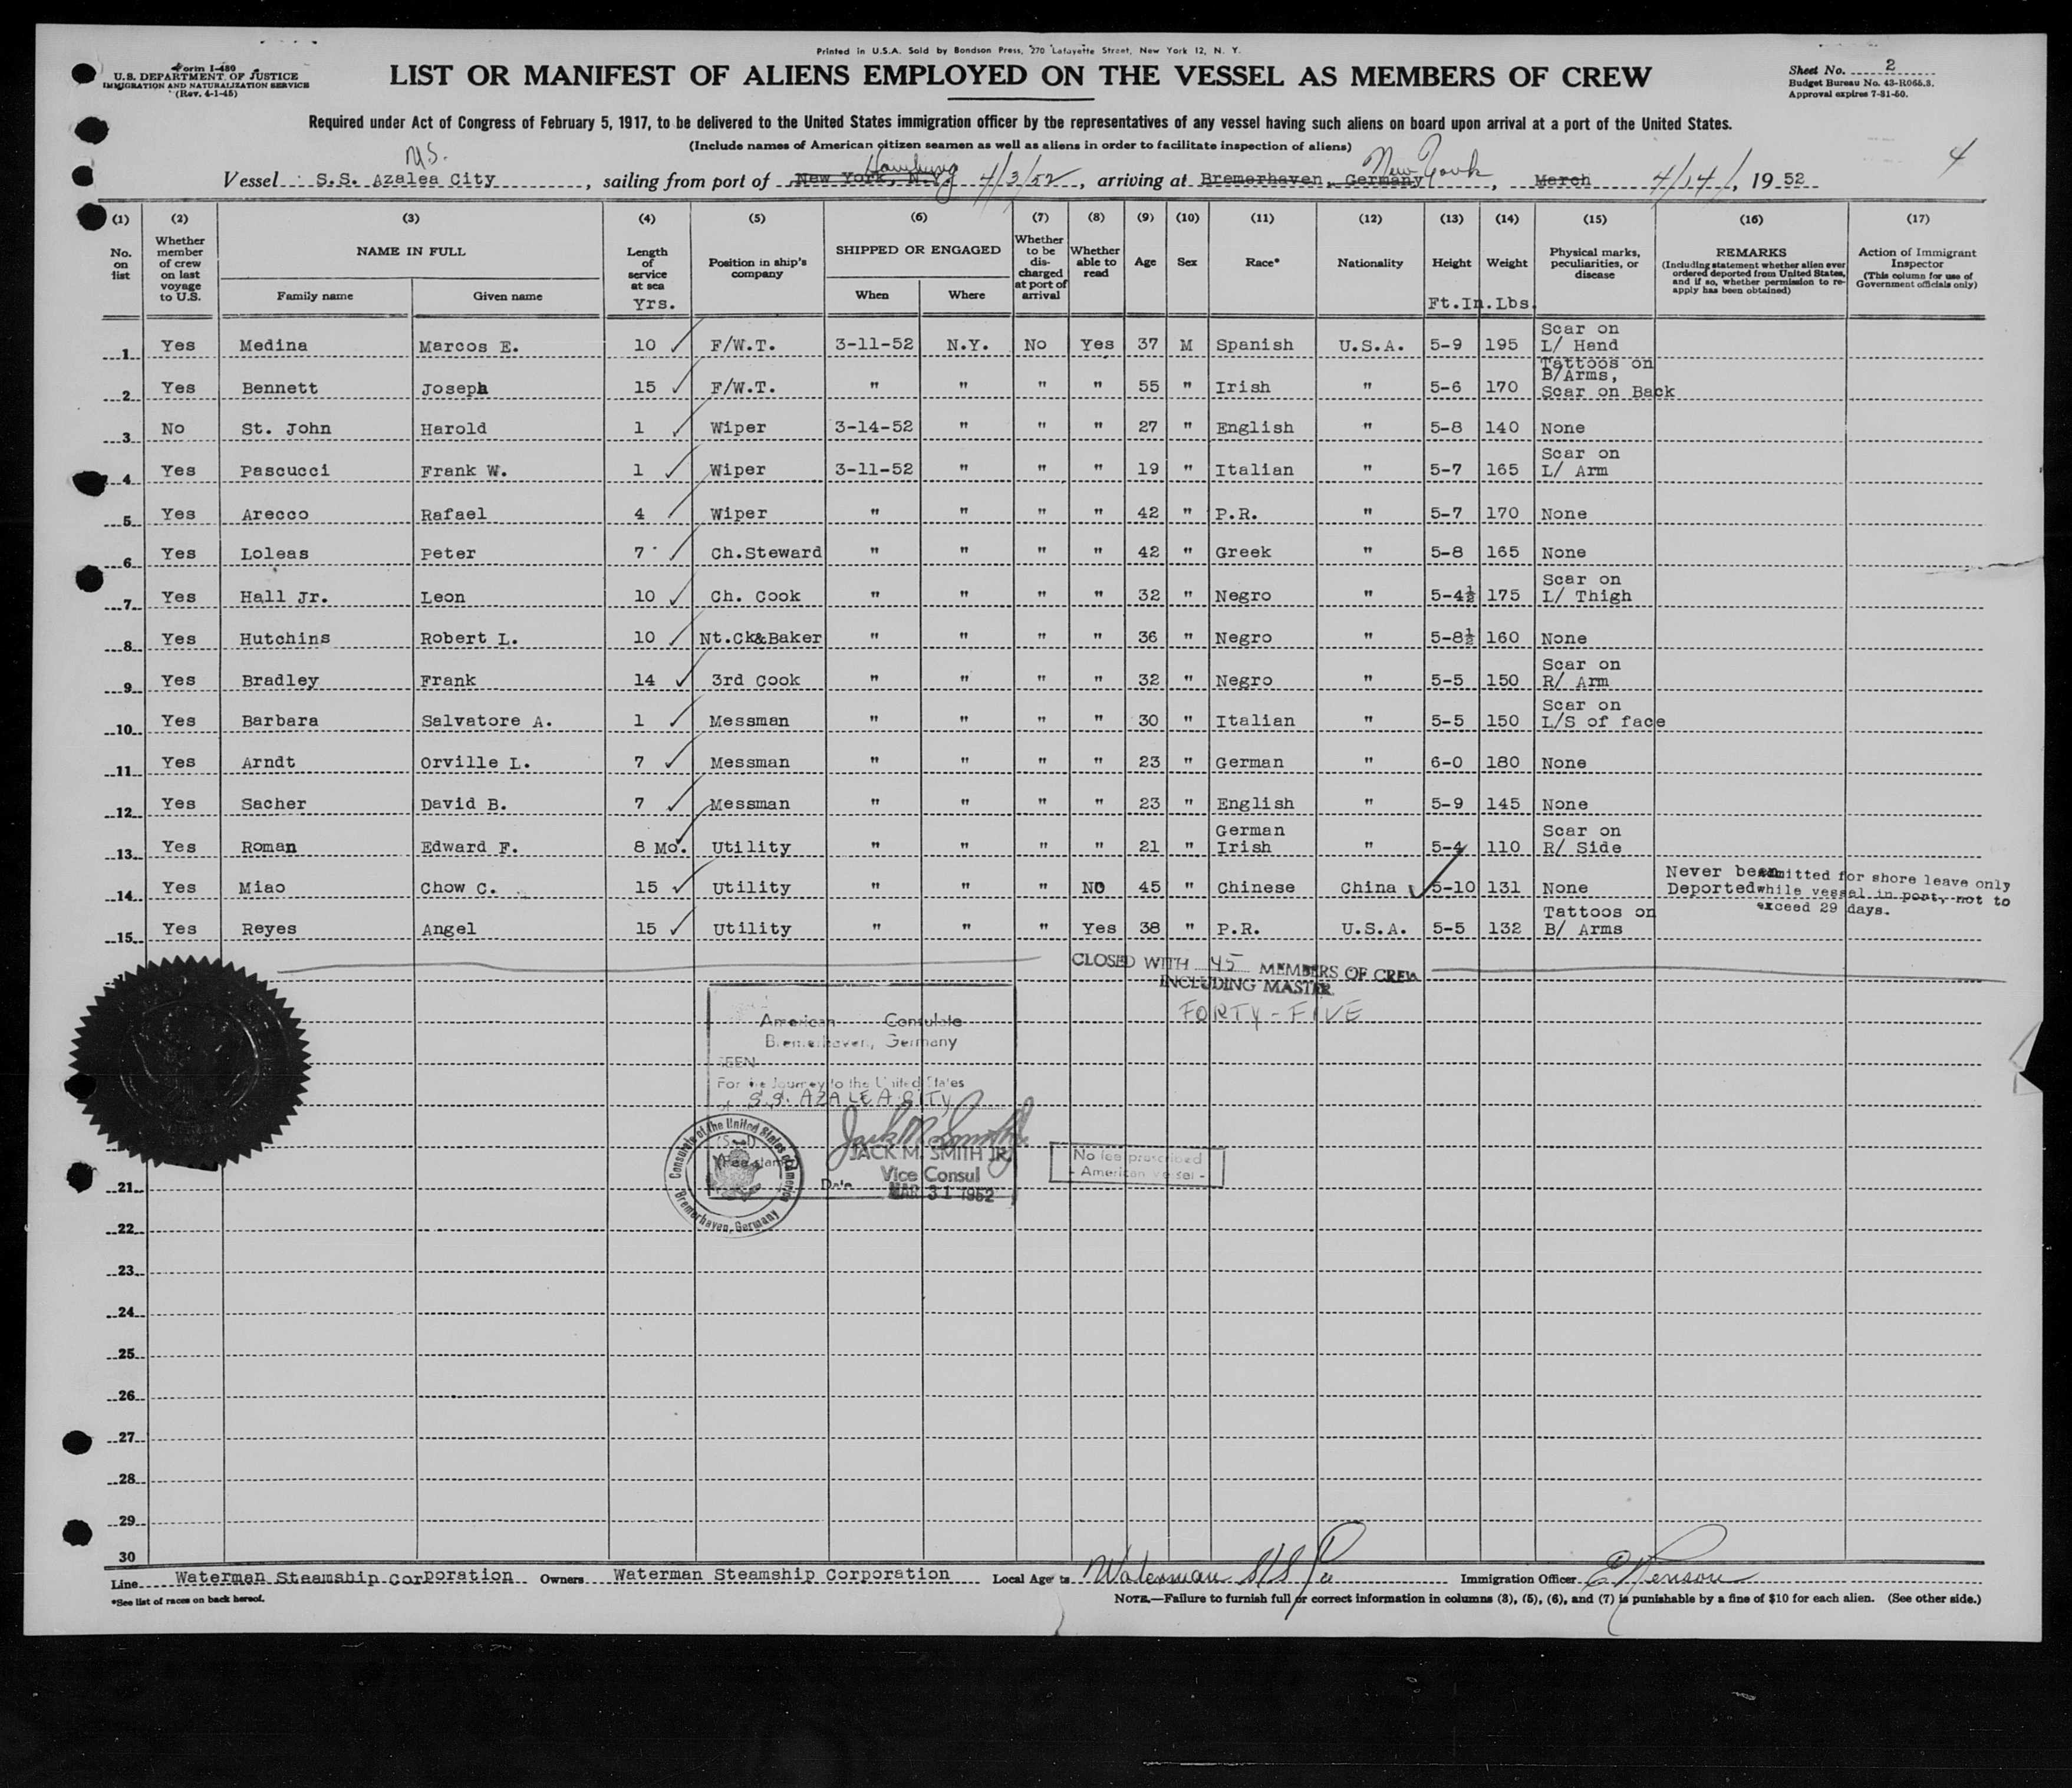 Printed in U.S.A. Sold by Bondson Press, 270 Lafayette Street, New York 12, N. Y.
Form I-480
U.S. DEPARTMENT OF JUSTICE
IMMIGRATION AND NATURALIZATION SERVICE
(Rev. 4-1-45)
LIST OR MANIFEST OF ALIENS EMPLOYED ON THE VESSEL AS MEMBERS OF CREW
Sheet No. 2
Budget Bureau No. 43-R065.3.
Approval expires 7-31-50.
Required under Act of Congress of February 5, 1917, to be delivered to the United States immigration officer by the representatives of any vessel having such aliens on board upon arrival at a port of the United States.
(Include names of American citizen seamen as well as aliens in order to facilitate inspection of aliens)
4
Hamburg New York
Vessel S.S. Azalea City, sailing from port of New York, N.Y. 4/3/52, arriving at Bremerhaven, Germany, March 4/14/, 19 52
(1) (2) (3) (4) (5) (6) (7) (8) (9) (10) (11) (12) (13) (14) (15) (16) (17)
No. on list Whether member of crew on last voyage to U.S. NAME IN FULL Family name Given name Length of service at sea Yrs. Position in ship's company SHIPPED OR ENGAGED When Where Whether to be discharged at port of arrival Whether able to read Age Sex Race* Nationality Height Ft.In. Weight Lbs. Physical marks, peculiarities, or disease REMARKS (Including statement whether alien ever ordered deported from United States, and if so, whether permission to re-apply has been obtained) Action of Immigrant Inspector (This column for use of Government officials only)
1 Yes Medina Marcos E. 10 F/W.T. 3-11-52 N.Y. No Yes 37 M Spanish U.S.A. 5-9 195 Scar on L/ Hand
2 Yes Bennett Joseph 15 F/W.T. " " " " 55 " Irish " 5-6 170 Tattoos on B/Arms, Scar on Back
3 No St. John Harold 1 Wiper 3-14-52 " " " 27 " English " 5-8 140 None
4 Yes Pascucci Frank W. 1 Wiper 3-11-52 " " " 19 " Italian " 5-7 165 Scar on L/ Arm
5 Yes Arecco Rafael 4 Wiper " " " " 42 " P.R. " 5-7 170 None
6 Yes Loleas Peter 7 Ch.Steward " " " " 42 " Greek " 5-8 165 None
7 Yes Hall Jr. Leon 10 Ch. Cook " " " " 32 " Negro " 5-4½ 175 Scar on L/ Thigh
8 Yes Hutchins Robert L. 10 Nt.Ck&Baker " " " " 36 " Negro " 5-8½ 160 None
9 Yes Bradley Frank 14 3rd Cook " " " " 32 " Negro " 5-5 150 Scar on R/ Arm
10 Yes Barbara Salvatore A. 1 Messman " " " " 30 " Italian " 5-5 150 Scar on L/S of face
11 Yes Arndt Orville L. 7 Messman " " " " 23 " German " 6-0 180 None
12 Yes Sacher David B. 7 Messman " " " " 23 " English " 5-9 145 None
13 Yes Roman Edward F. 8 Mo. Utility " " " " 21 " German Irish " 5-4 110 Scar on R/ Side
14 Yes Miao Chow C. 15 Utility " " " NO 45 " Chinese China 5-10 131 None Never been Deported admitted for shore leave only while vessel in port, not to exceed 29 days.
15 Yes Reyes Angel 15 Utility " " " Yes 38 " P.R. U.S.A. 5-5 132 Tattoos on B/ Arms
CLOSED WITH 45 MEMBERS OF CREW
INCLUDING MASTER
FORTY-FIVE
American Consulate
Bremerhaven, Germany
SEEN
For the Journey to the United States
S.S. AZALEA CITY
Jack M. Smith Jr.
JACK M. SMITH JR.
Vice Consul
Date MAR 31 1952
Consulate of the United States of America
Bremerhaven, Germany
No fee prescribed
- American vessel -
21
22
23
24
25
26
27
28
29
30
Line Waterman Steamship Corporation Owners Waterman Steamship Corporation Local Agents Waterman S/S Immigration Officer
*See list of races on back hereof.
NOTE.—Failure to furnish full or correct information in columns (3), (5), (6), and (7) is punishable by a fine of $10 for each alien. (See other side.)